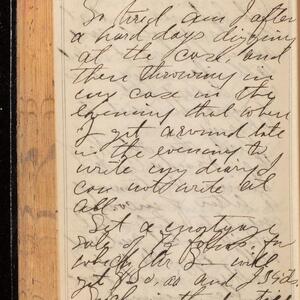 So tired am I after
a hard days digging
at the case, and
then throwing in
my case in the
evening that when
I get around late
in the evening to
write my diary I
can not write at
all.
Get a mortgage
sale of
which Mr B will
get $50,00 and I